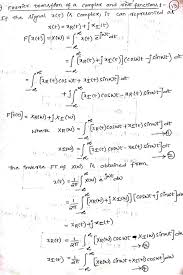 Fourier transform of a complex and real functions :-
If the signal x(t) is complex, it can be represented as
x(t) = xR(t) + j xI(t)
F[x(t)] = X(ω) = ∫ x(t) e^-jωt dt
= ∫ [xR(t) + j xI(t)] (cosωt - j sinωt) dt
= ∫ [xR(t) cosωt + xI(t) sinωt] dt
+ j ∫ [xI(t) cosωt - xR(t) sinωt] dt
F[x(t)] = XR(ω) + j XI(ω)
where XR(ω) = ∫ [xR(t) cosωt + xI(t) sinωt] dt
XI(ω) = ∫ [xI(t) cosωt - xR(t) sinωt] dt
the Inverse FT of X(ω) is obtained from
x(t) = 1/2π ∫ X(ω) e^jωt dω
= 1/2π ∫ [XR(ω) + j XI(ω)] [cosωt + j sinωt] dω
xR(t) = 1/2π ∫ [XR(ω) cosωt - XI(ω) sinωt] dω
xI(t) = 1/2π ∫ [XR(ω) sinωt + XI(ω) cosωt] dω